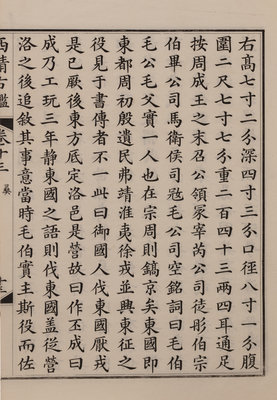 右高七寸二分深四寸三分口徑八寸一分腹
圍二尺七寸七分重二百四十三兩四耳通足
按周成王之末召公領冢宰芮公司徒彤伯宗
伯畢公司馬衛侯司宼毛公司空銘詞曰毛伯
毛公毛父實一人也在宗周則鎬京矣東國即
東都周初殷遺民弗靖淮夷徐戎並興東征之
役見于書傳者不一此曰御國人伐東國厭戎
是已厥後東方底定洛邑是營故曰作丕成曰
成乃工玩三年靜東國之語則伐東國盖從營
洛之後追敘其事意當時毛伯實主斯役而佐
西清古鑑
卷十三
彝
十三